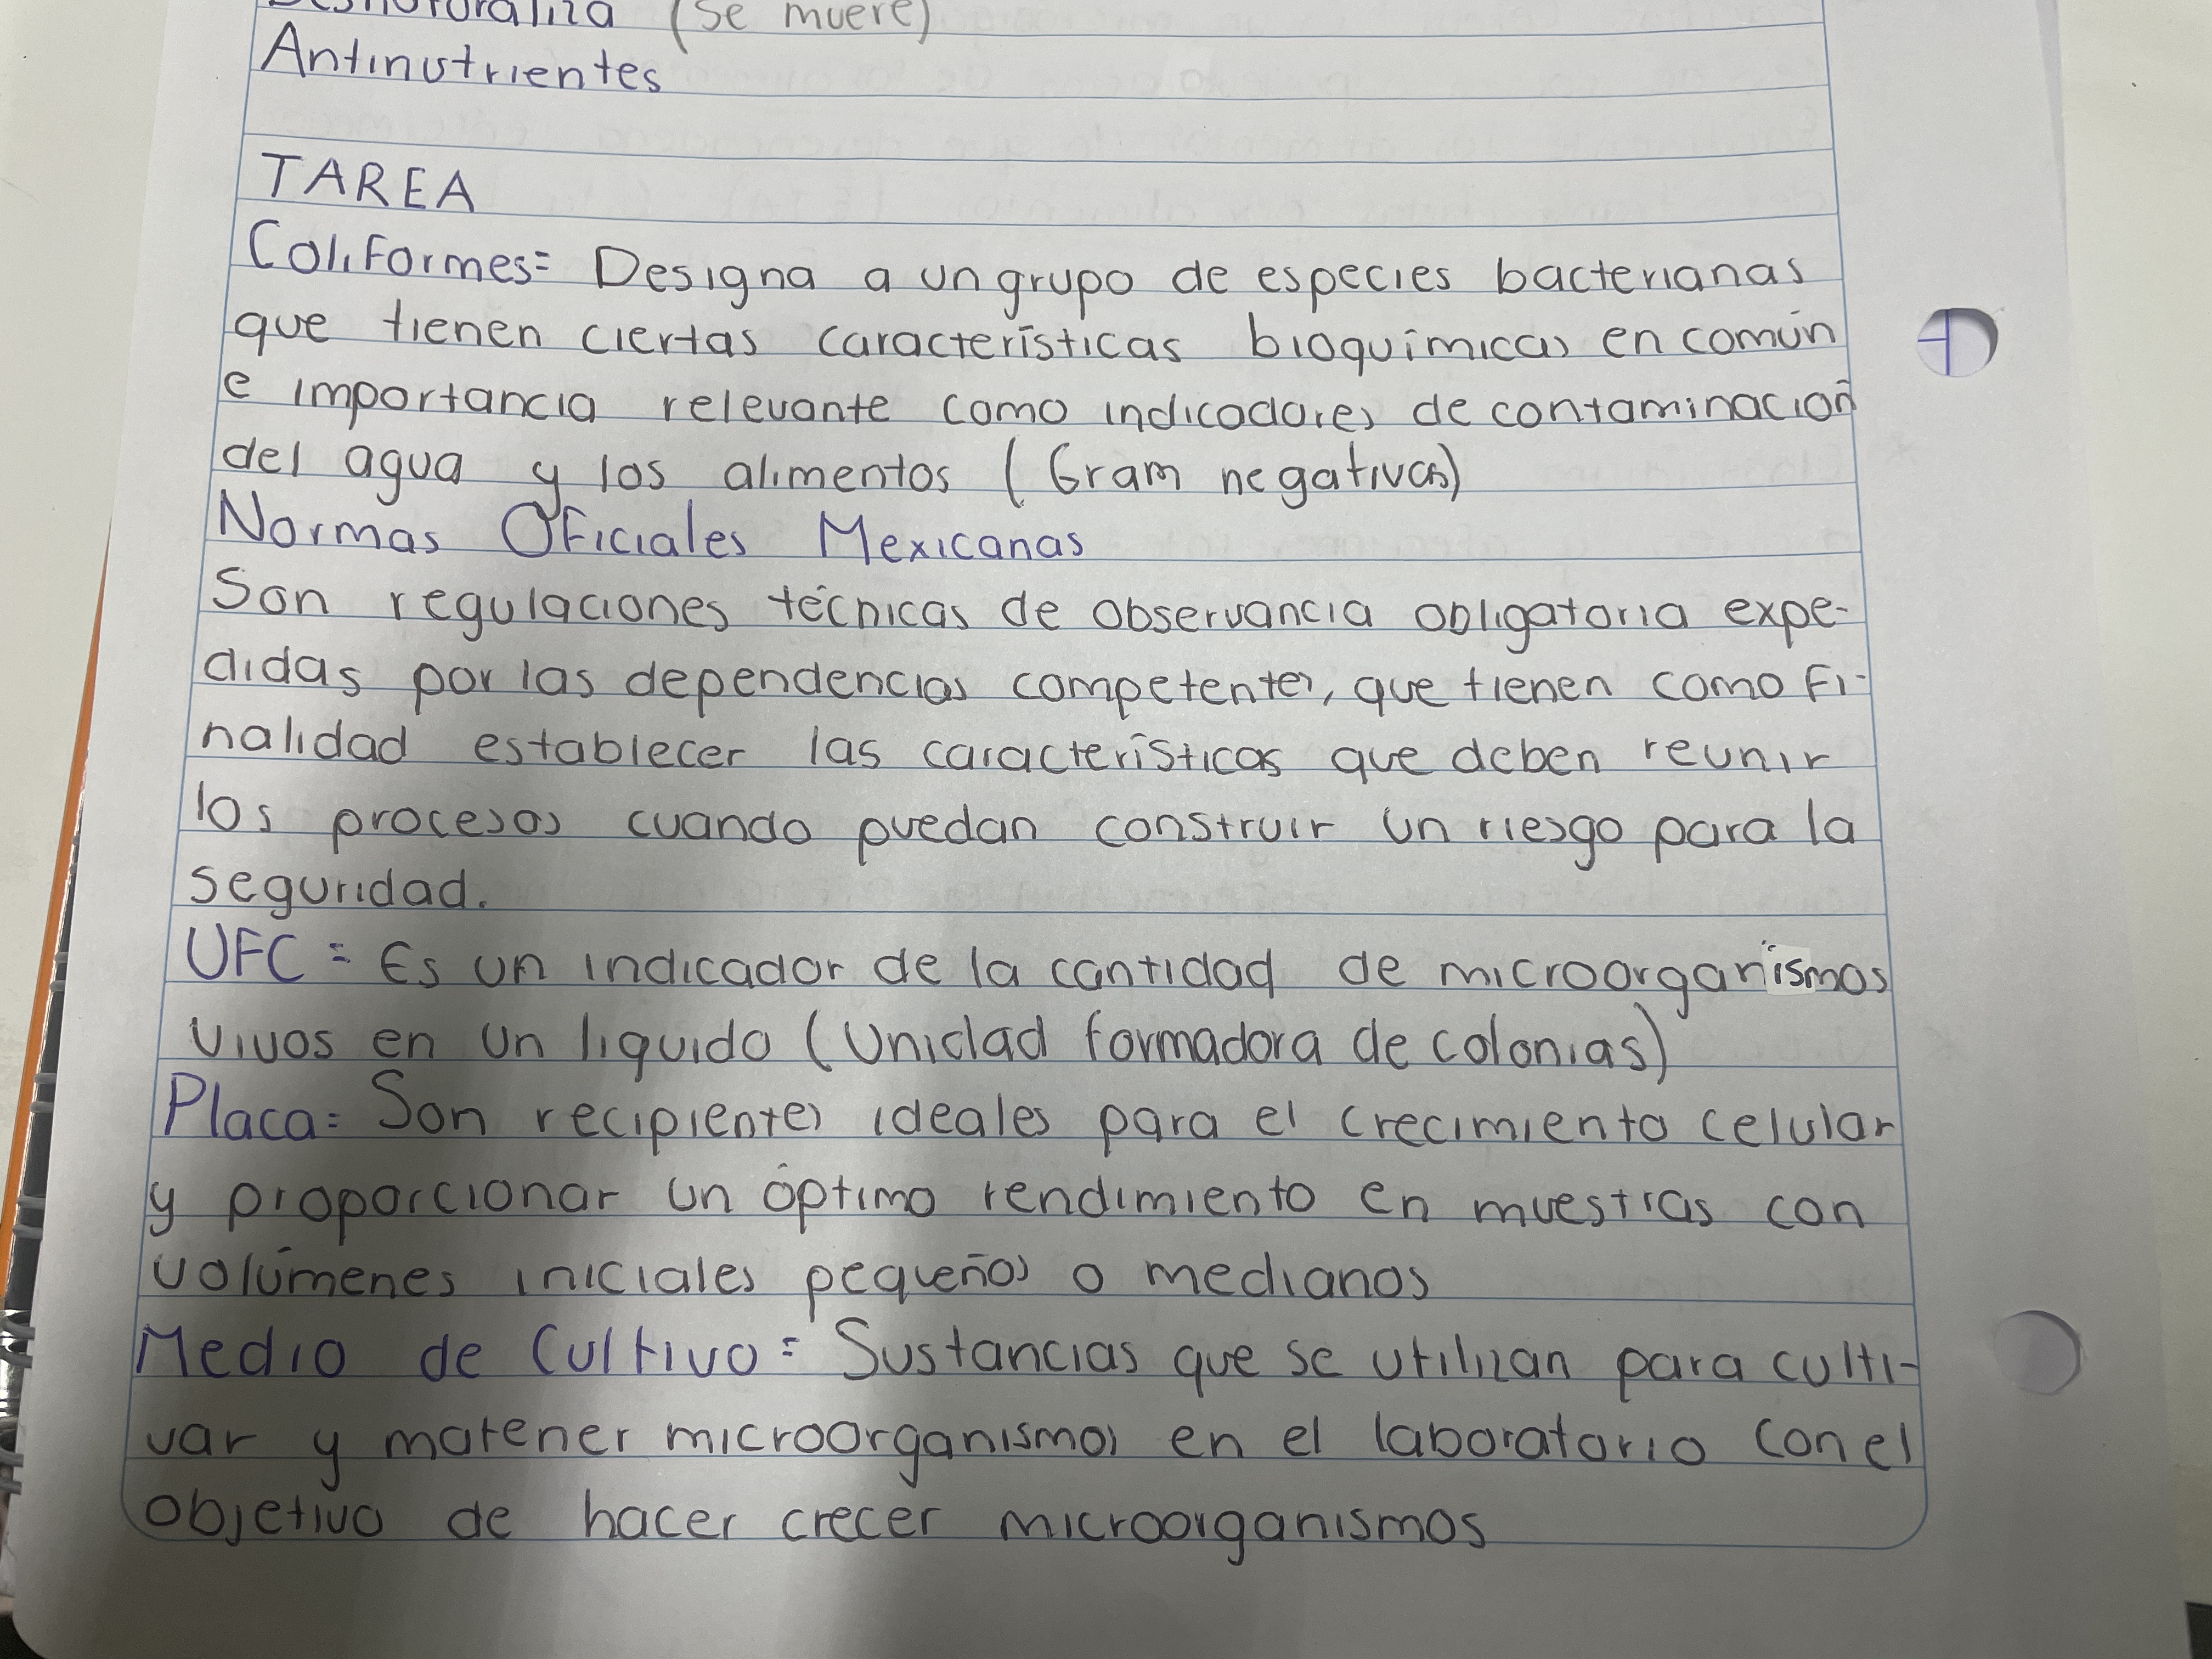 Desnaturaliza (Se muere)
Antinutrientes
TAREA
Coliformes= Designa a un grupo de especies bacterianas
que tienen ciertas características bioquímicas en común
e importancia relevante como indicadores de contaminación
del agua y los alimentos (Gram negativas)
Normas Oficiales Mexicanas
Son regulaciones técnicas de observancia obligatoria expe-
didas por las dependencias competentes, que tienen como fi-
nalidad establecer las características que deben reunir
los procesos cuando puedan construir un riesgo para la
seguridad.
UFC = Es un indicador de la cantidad de microorganismos
vivos en un liquido (Unidad formadora de colonias)
Placa= Son recipientes ideales para el crecimiento celular
y proporcionar un óptimo rendimiento en muestras con
volúmenes iniciales pequeños o medianos
Medio de Cultivo = Sustancias que se utilizan para culti-
var y matener microorganismos en el laboratorio con el
objetivo de hacer crecer microorganismos